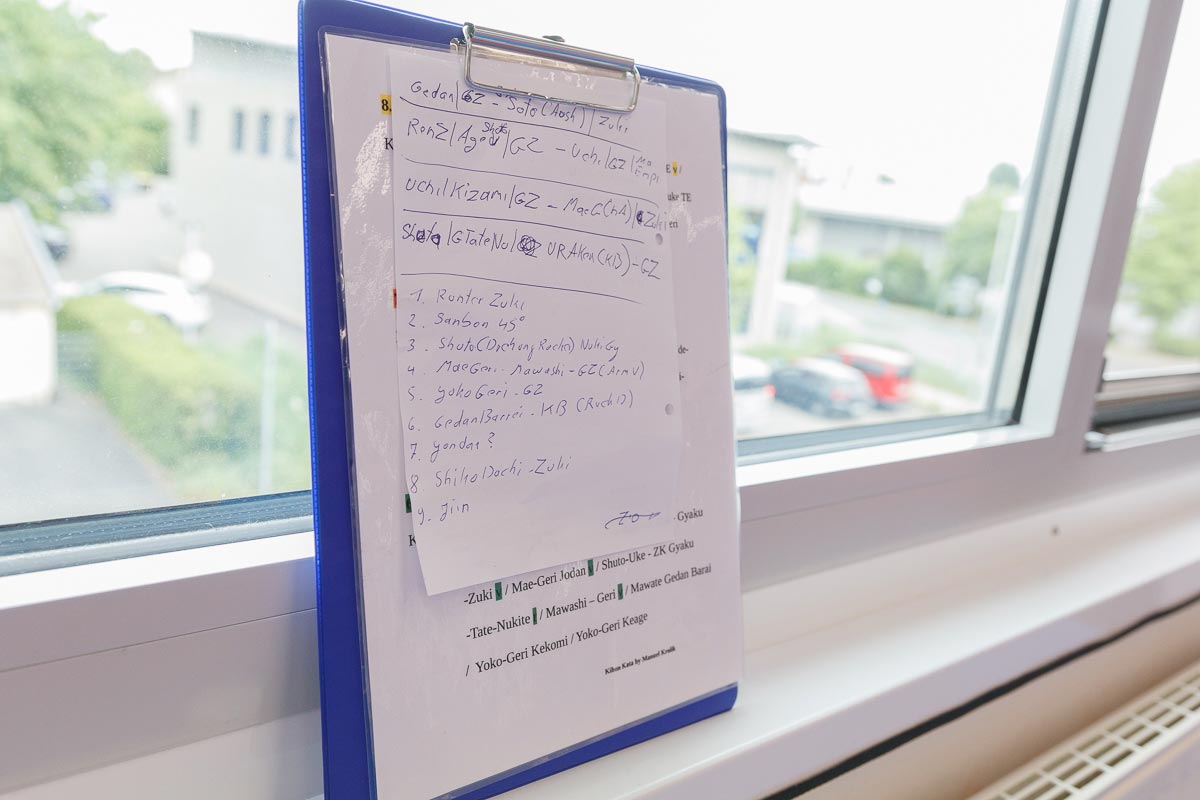 Gedan|GZ - Soto (Aosh) | Zuki
RenZ|Age Shoto|GZ - Uchi|GZ|Ma Empi
Uchi|Kizami|GZ - MaeG(hA)|Zuki
Shoto|GTateNu| URAKen(KB)-GZ
1. Ronter Zuki
2. Sanbon 45°
3. Shuto(Drehung Rechts) NukiGy
4. MaeGeri - Mawashi - GZ(Arm V)
5. Yoko Geri - GZ
6. Gedan Barrei - KB (Ruck D)
7. Yondan?
8 Shiko Dachi - Zuki
9. Jiin
8.
K
E v /
uke TE
en
de-
i-
K
Gyaku
-Zuki v / Mae-Geri Jodan v / Shuto-Uke - ZK Gyaku
-Tate-Nukite t / Mawashi – Geri v / Mawate Gedan Barai
/ Yoko-Geri Kekomi / Yoko-Geri Keage
Kihon Kata by Manuel Krulik